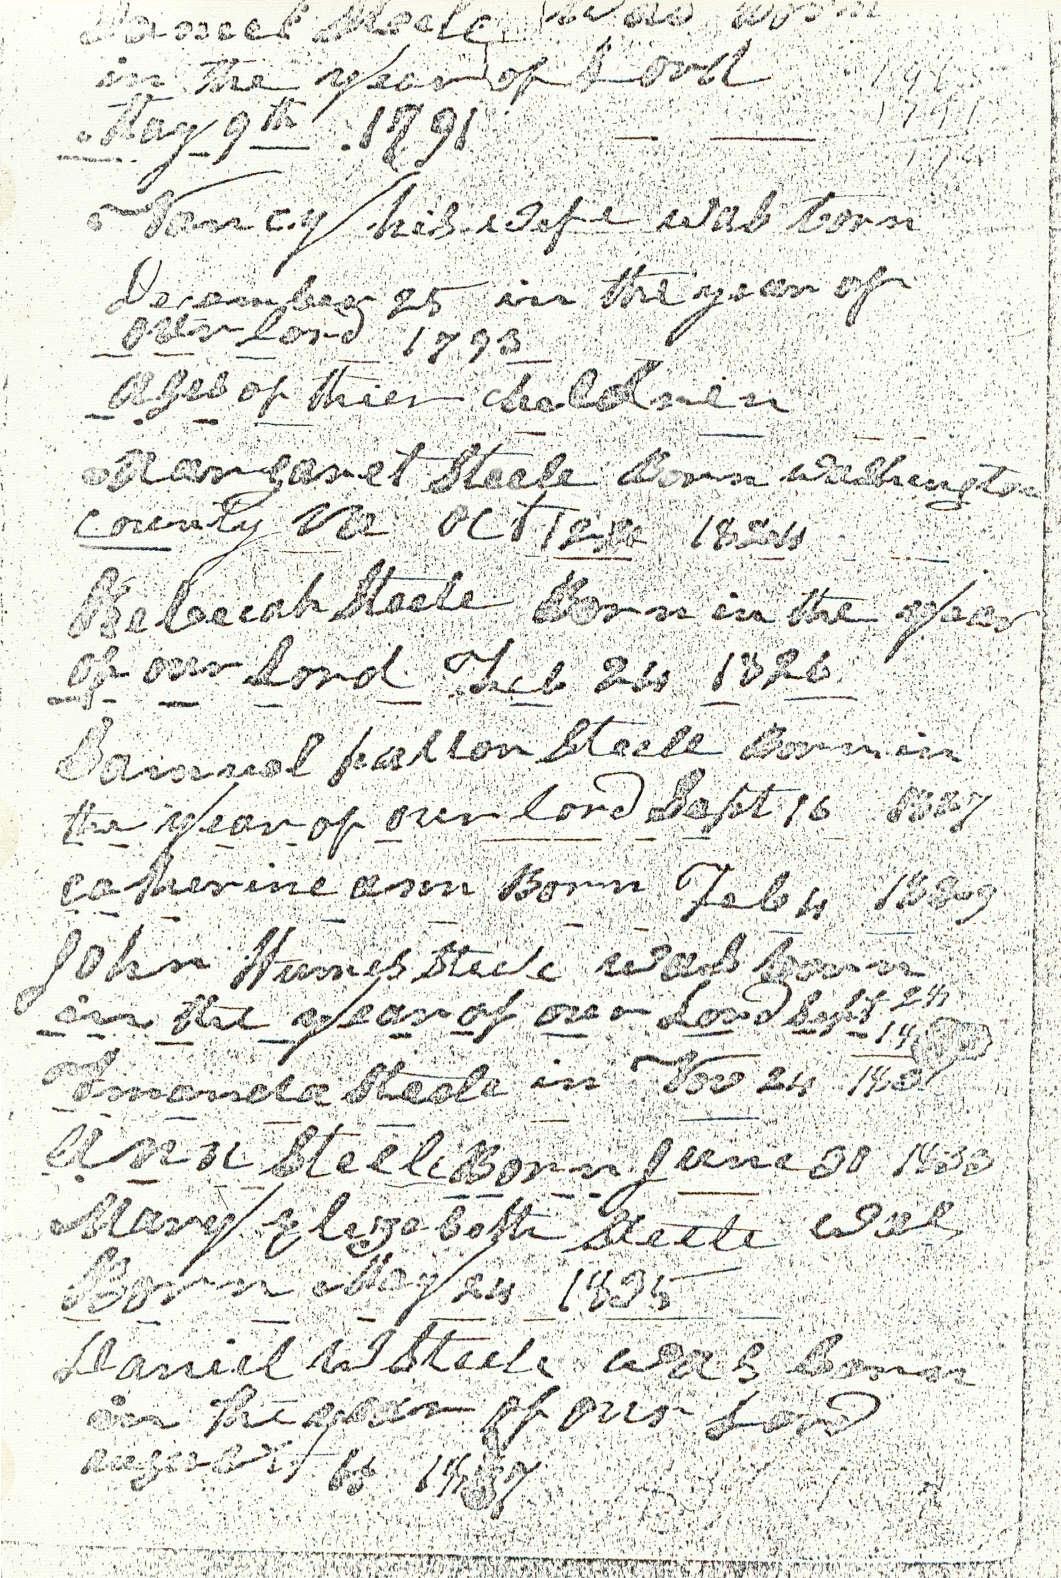 Daniel Steele was born
in the year of Lord
May 9th 1791
1791
Nancy his wife was born
December 25 in the year of
our lord 1793
ages of thier children
Margaret Steele Born Washington
county Va Oct 1824
Rebecah Steele Born in the year
of our Lord Feb 24 1826
Samuel patton Steele Born in
the year of our lord Sept 16 1827
catherine ann Born Feb 4 1829
John Humes Steele was born
in the year of our Lord Sept 24
Amanda Steele in Nov 24
Ann Steele Born June 30 1833
Mary Elizabeth Steele was
Born May 24 1835
Daniel W Steele was Born
in the year of our Lord
august 1837